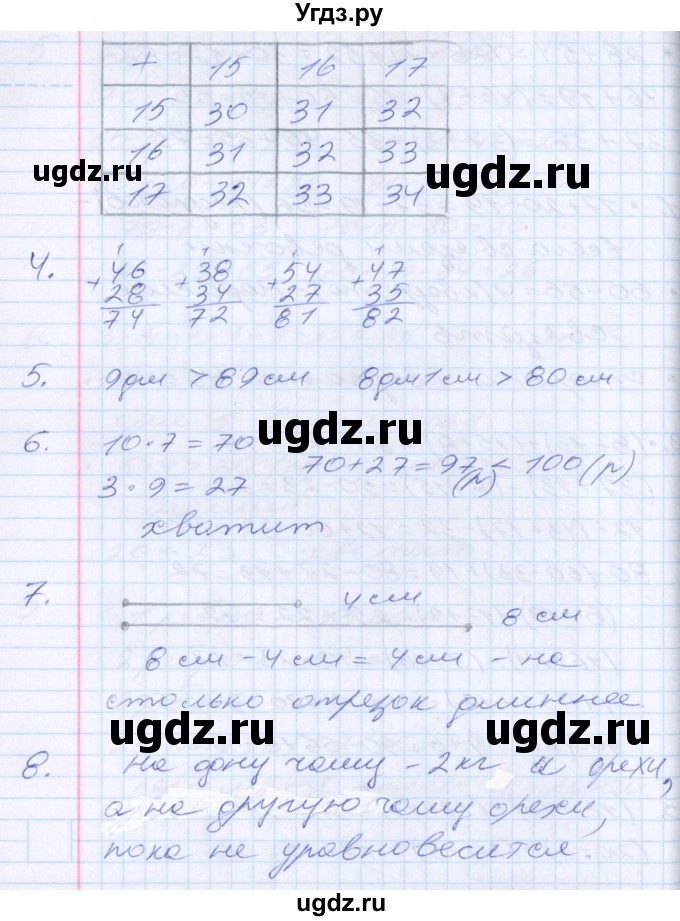 Угдз.ру
+ 15 16 17
15 30 31 32
16 31 32 33
17 32 33 34
ugdz.ru ugdz.ru
4. 1 1 1 1
+46 +38 +54 +47
28 34 27 35
74 72 81 82
5. 9дм > 89 см 8дм1см > 80 см
ugdz.ru
6. 10·7 = 70
70+27=97 < 100 (р)
3·9=27 (р)
хватит
7. 4 см
8 см
8 см - 4 см = 4 см - на
столько отрезок длиннее
ugdz.ru ugdz.ru
8. На одну чашу - 2 кг и орехи,
а на другую чашу орехи,
пока не уравновесится.
ugdz.ru